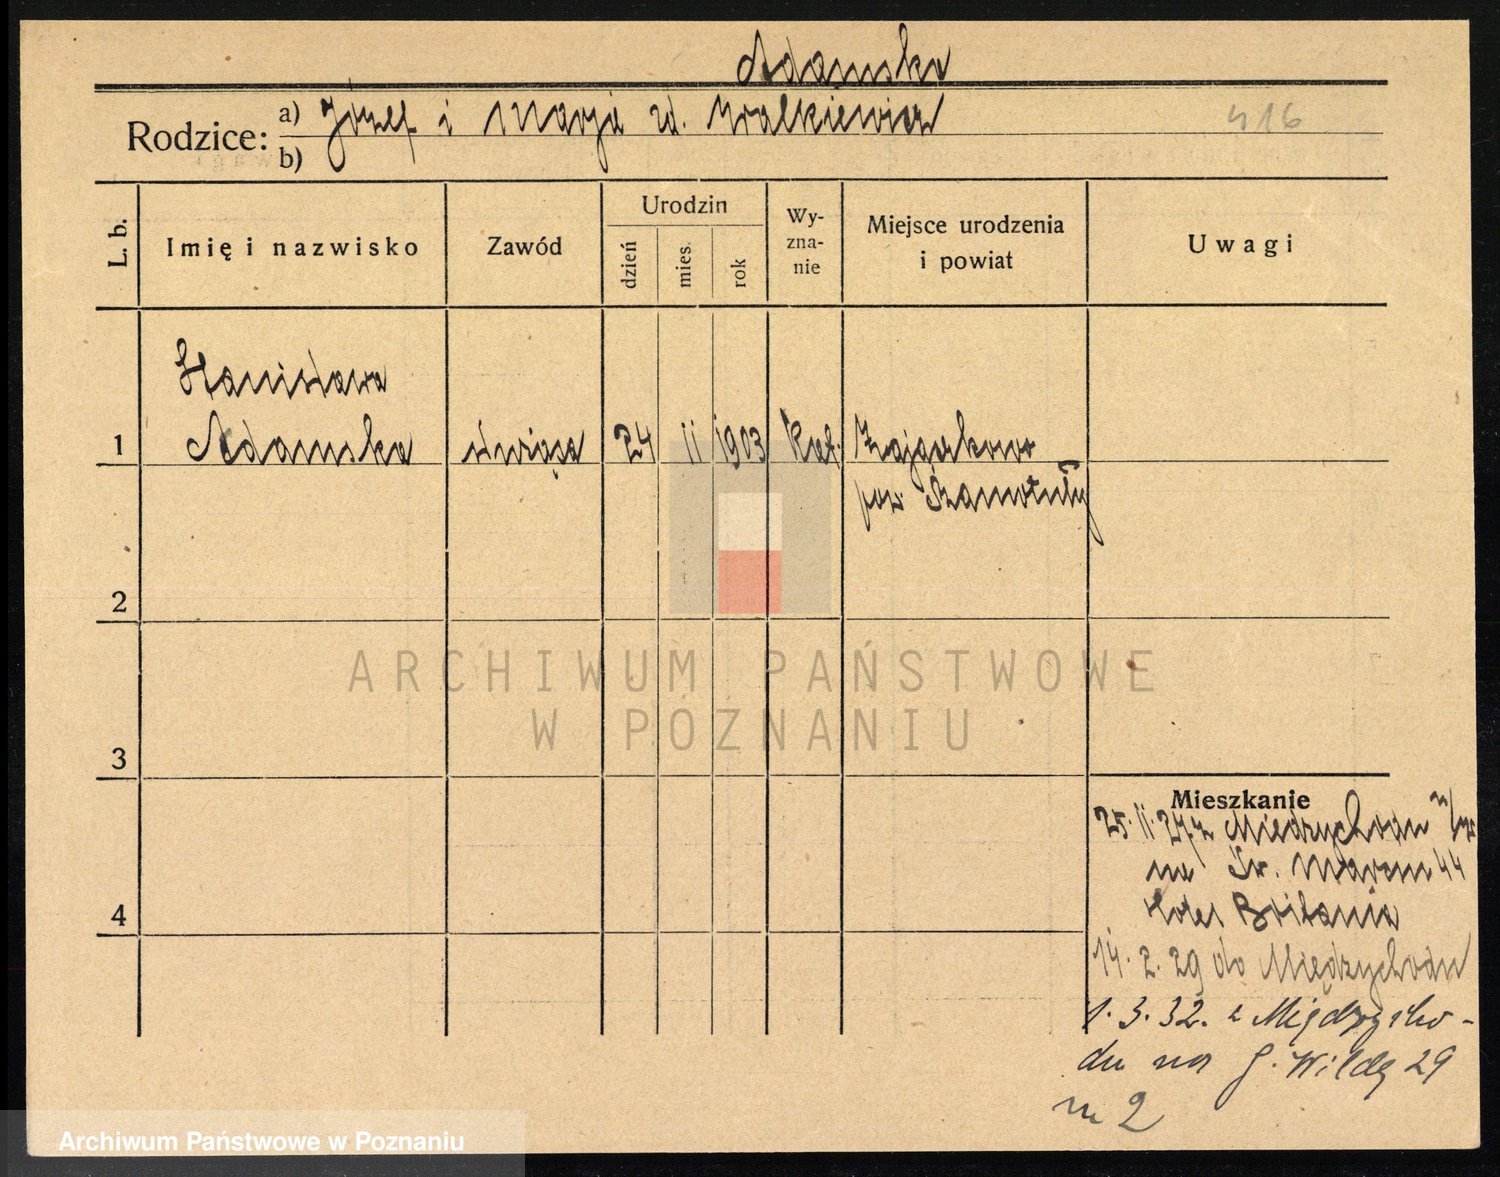 Adamska
Rodzice: a) Józef i Marja zd. Walkiewicz
b)
416
L. b.
Imię i nazwisko
Zawód
Urodzin
dzień
mies.
rok
Wy-
zna-
nie
Miejsce urodzenia
i powiat
Uwagi
Stanisława
1 Adamska służąca 24 II 1903 kat. Zajączkowo
pow. Szamotuły
2
3
4
Mieszkanie
25.II.27 z Międzychodu
na Św. Marcin 44
Hotel Britania
14.2.29 do Międzychodu
1.3.32. z Międzycho-
du na G. Wildę 29
m 2
ARCHIWUM PAŃSTWOWE
W POZNANIU
Archiwum Państwowe w Poznaniu